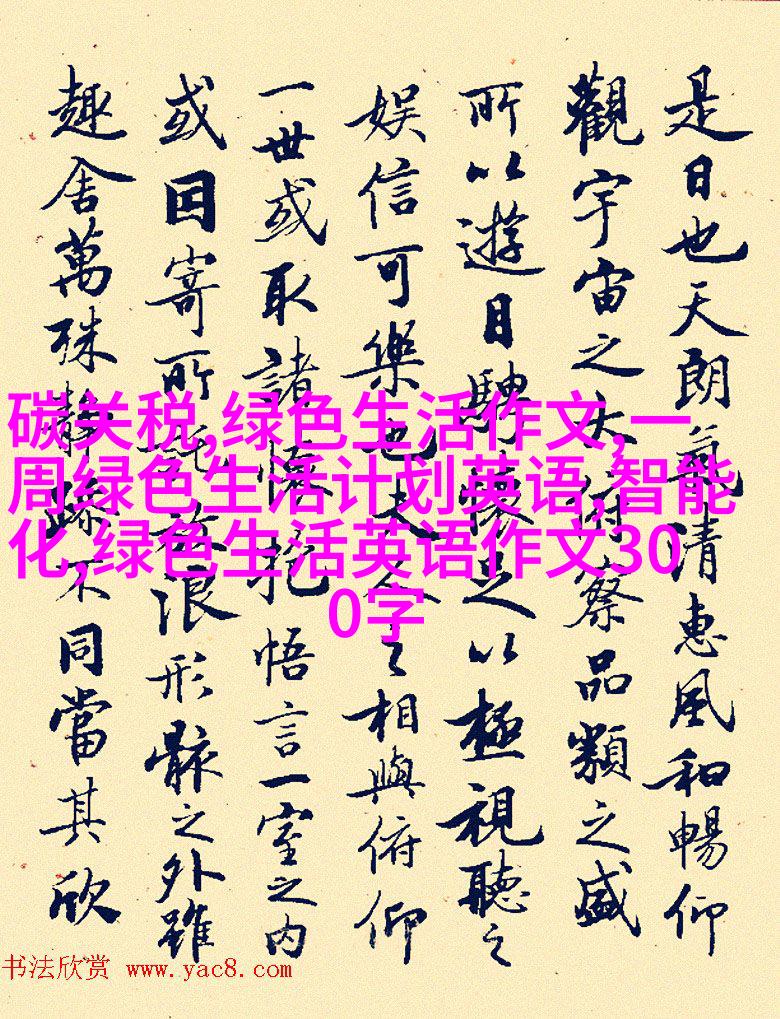 是日也天朗氣清惠風和暢仰
觀宇宙之大俯察品類之盛
所以遊目騁懷足以極視聽之
娱信可樂也夫人之相與俯仰
一世或取諸懷抱悟言一室之内
或因寄所託放浪形骸之外雖
趣舍萬殊静躁不同當其欣
碳关税,绿色生活作文,一
周绿色生活计划英语,智能
化,绿色生活英语作文30
0字
书法欣赏 www.yac8.com